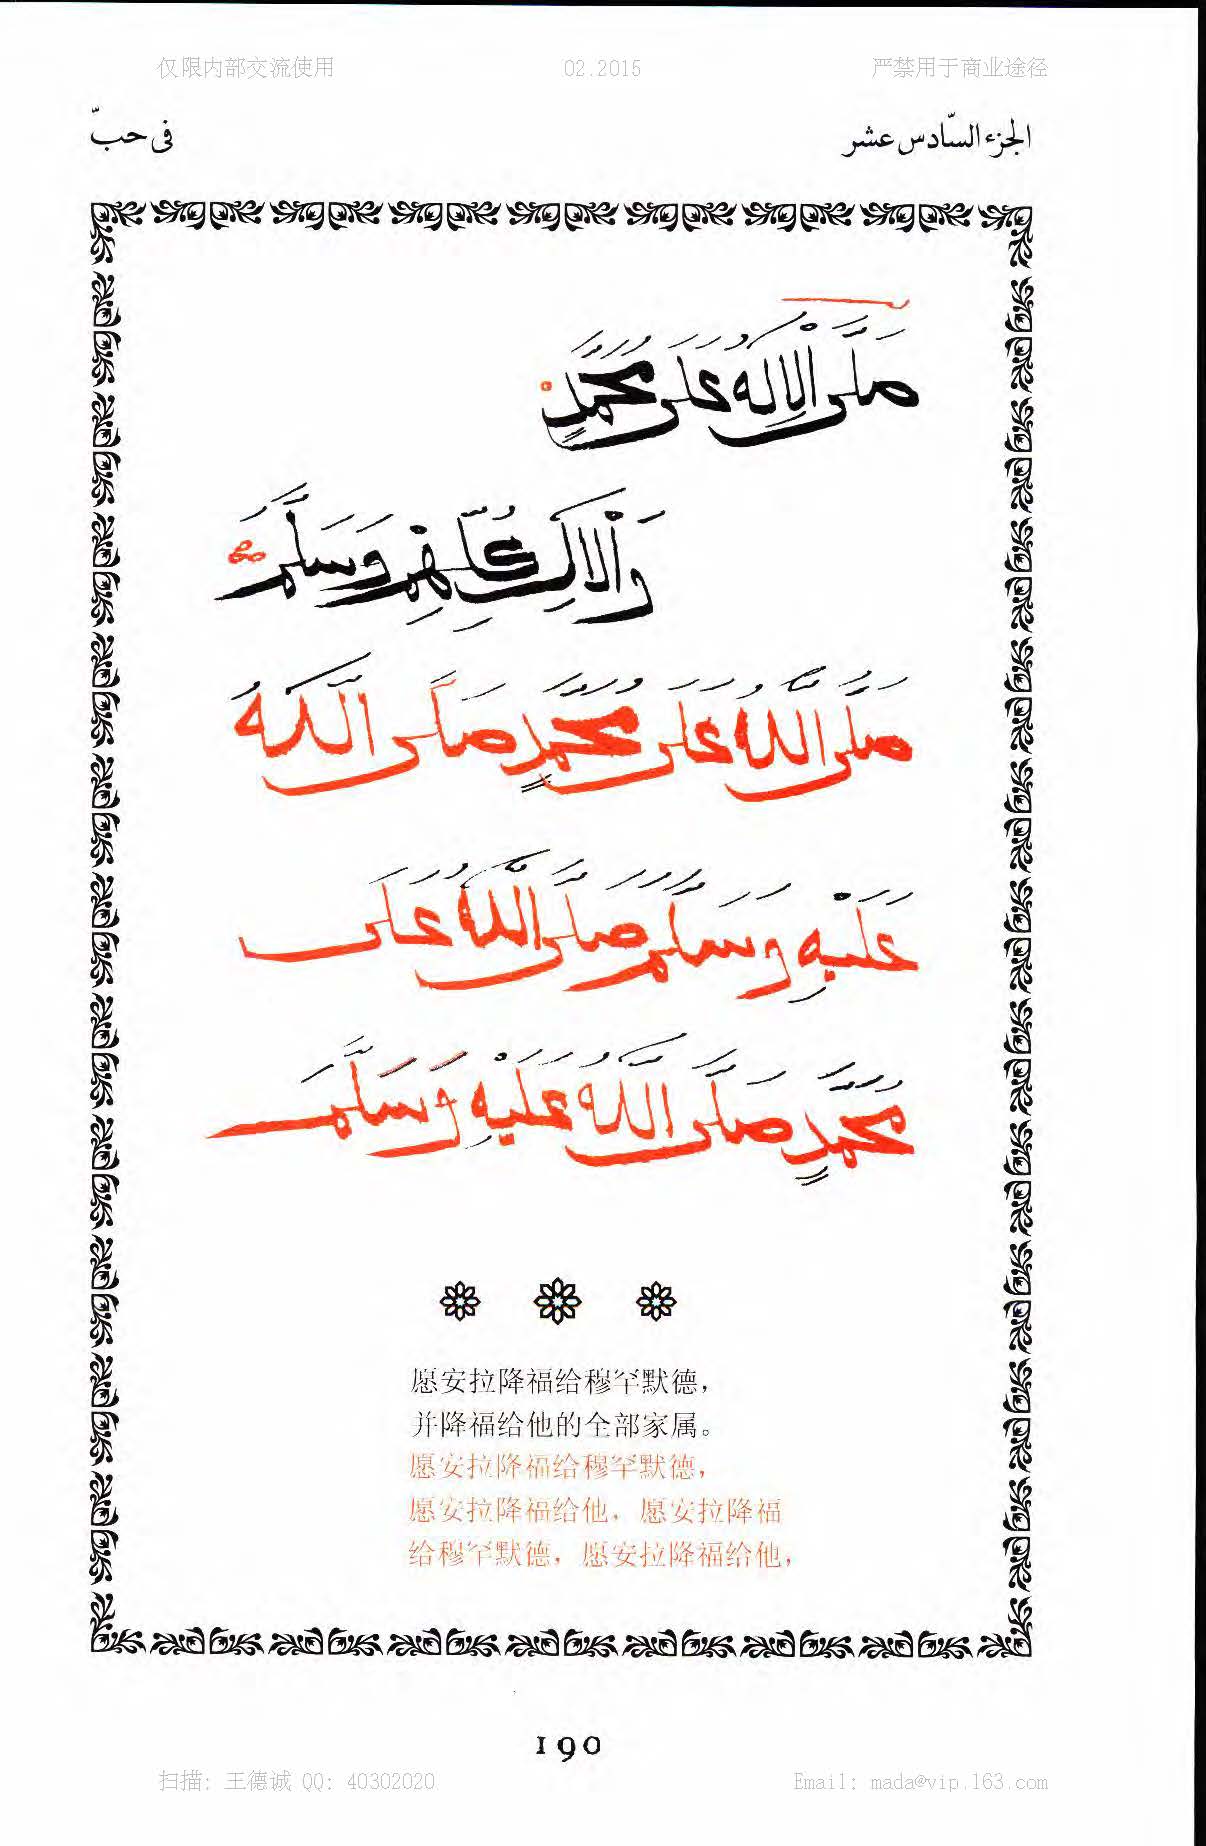 仅限内部交流使用 02.2015 严禁用于商业途径
الجزء السّادس عشر فى حبّ
صَلَّى الْإِلَهُ عَلَى مُحَمَّدٍ
وَالْالِ كُلِّهِمِ وَسَلَّمَ
صَلَّى اللَّهُ عَلَى مُحَمَّدٍ صَلَّى اللَّهُ
عَلَيْهِ وَسَلَّمَ صَلَّى اللَّهُ عَلَى
مُحَمَّدٍ صَلَّى اللَّهُ عَلَيْهِ وَسَلَّمَ
愿安拉降福给穆罕默德，
并降福给他的全部家属。
愿安拉降福给穆罕默德，
愿安拉降福给他，愿安拉降福
给穆罕默德，愿安拉降福给他，
190
扫描: 王德诚 QQ: 40302020 Email: mada@vip.163.com